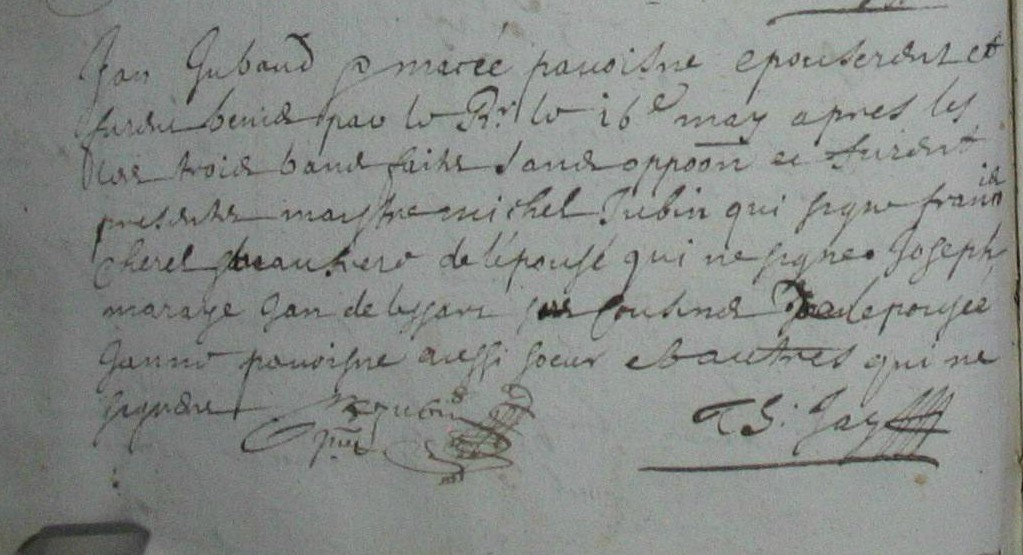 Jan Gubaud & macée pauoisne epouserent et
furent benis par le Rr. le 16e may apres les
trois bans faits sans oppoõn et furent
presents maystre michel Jubin qui signe francois
cherel beaufrere de lépousé qui ne signe Joseph
maraye Jan de lessart cousins de lepousée
Janne pauoisne aussi soeur et autres qui ne
signent M Jubin
G. Jay